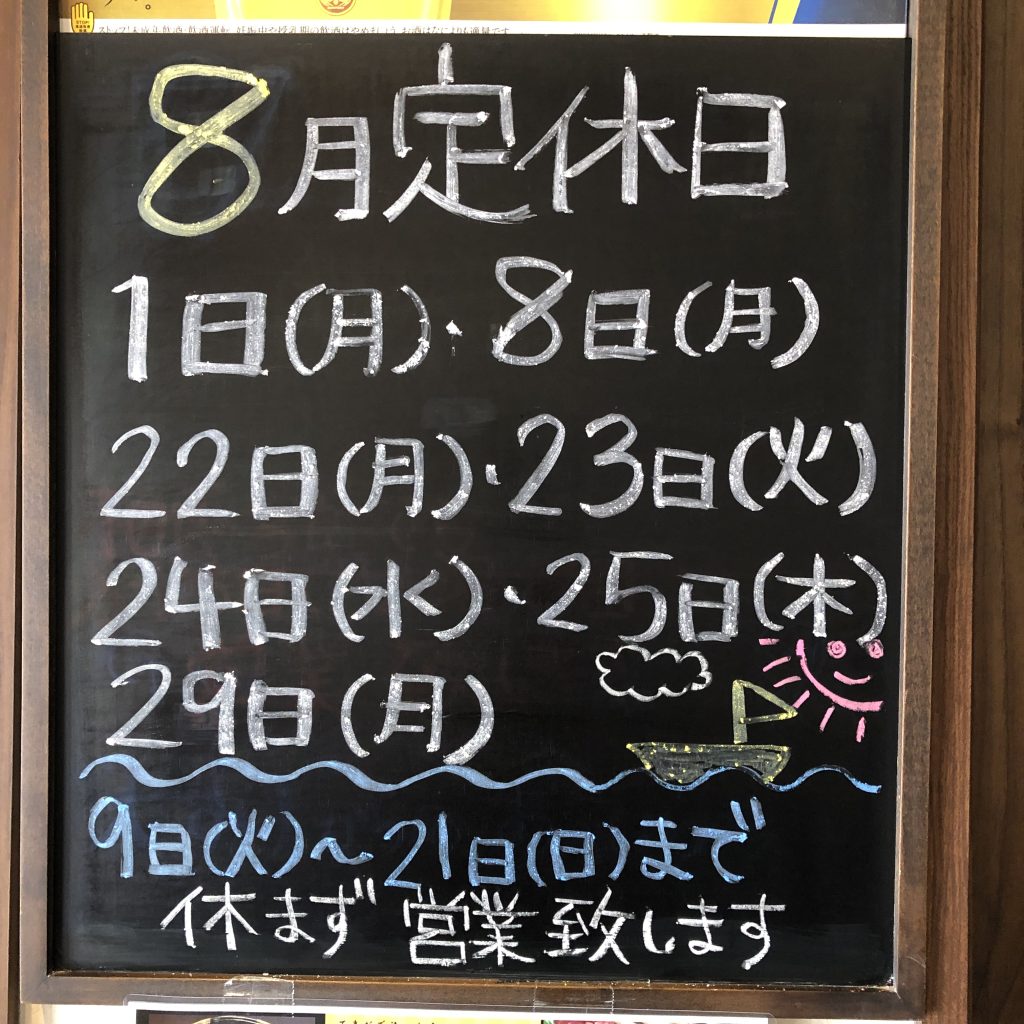 ストップ!未成年飲酒・飲酒運転。妊娠中や授乳期の飲酒はやめましょう。お酒はなによりも適量です。
8月定休日
1日(月)・8日(月)
22日(月)・23日(火)
24日(水)・25日(木)
29日(月)
9日(火)~21日(日)まで
休まず営業致します